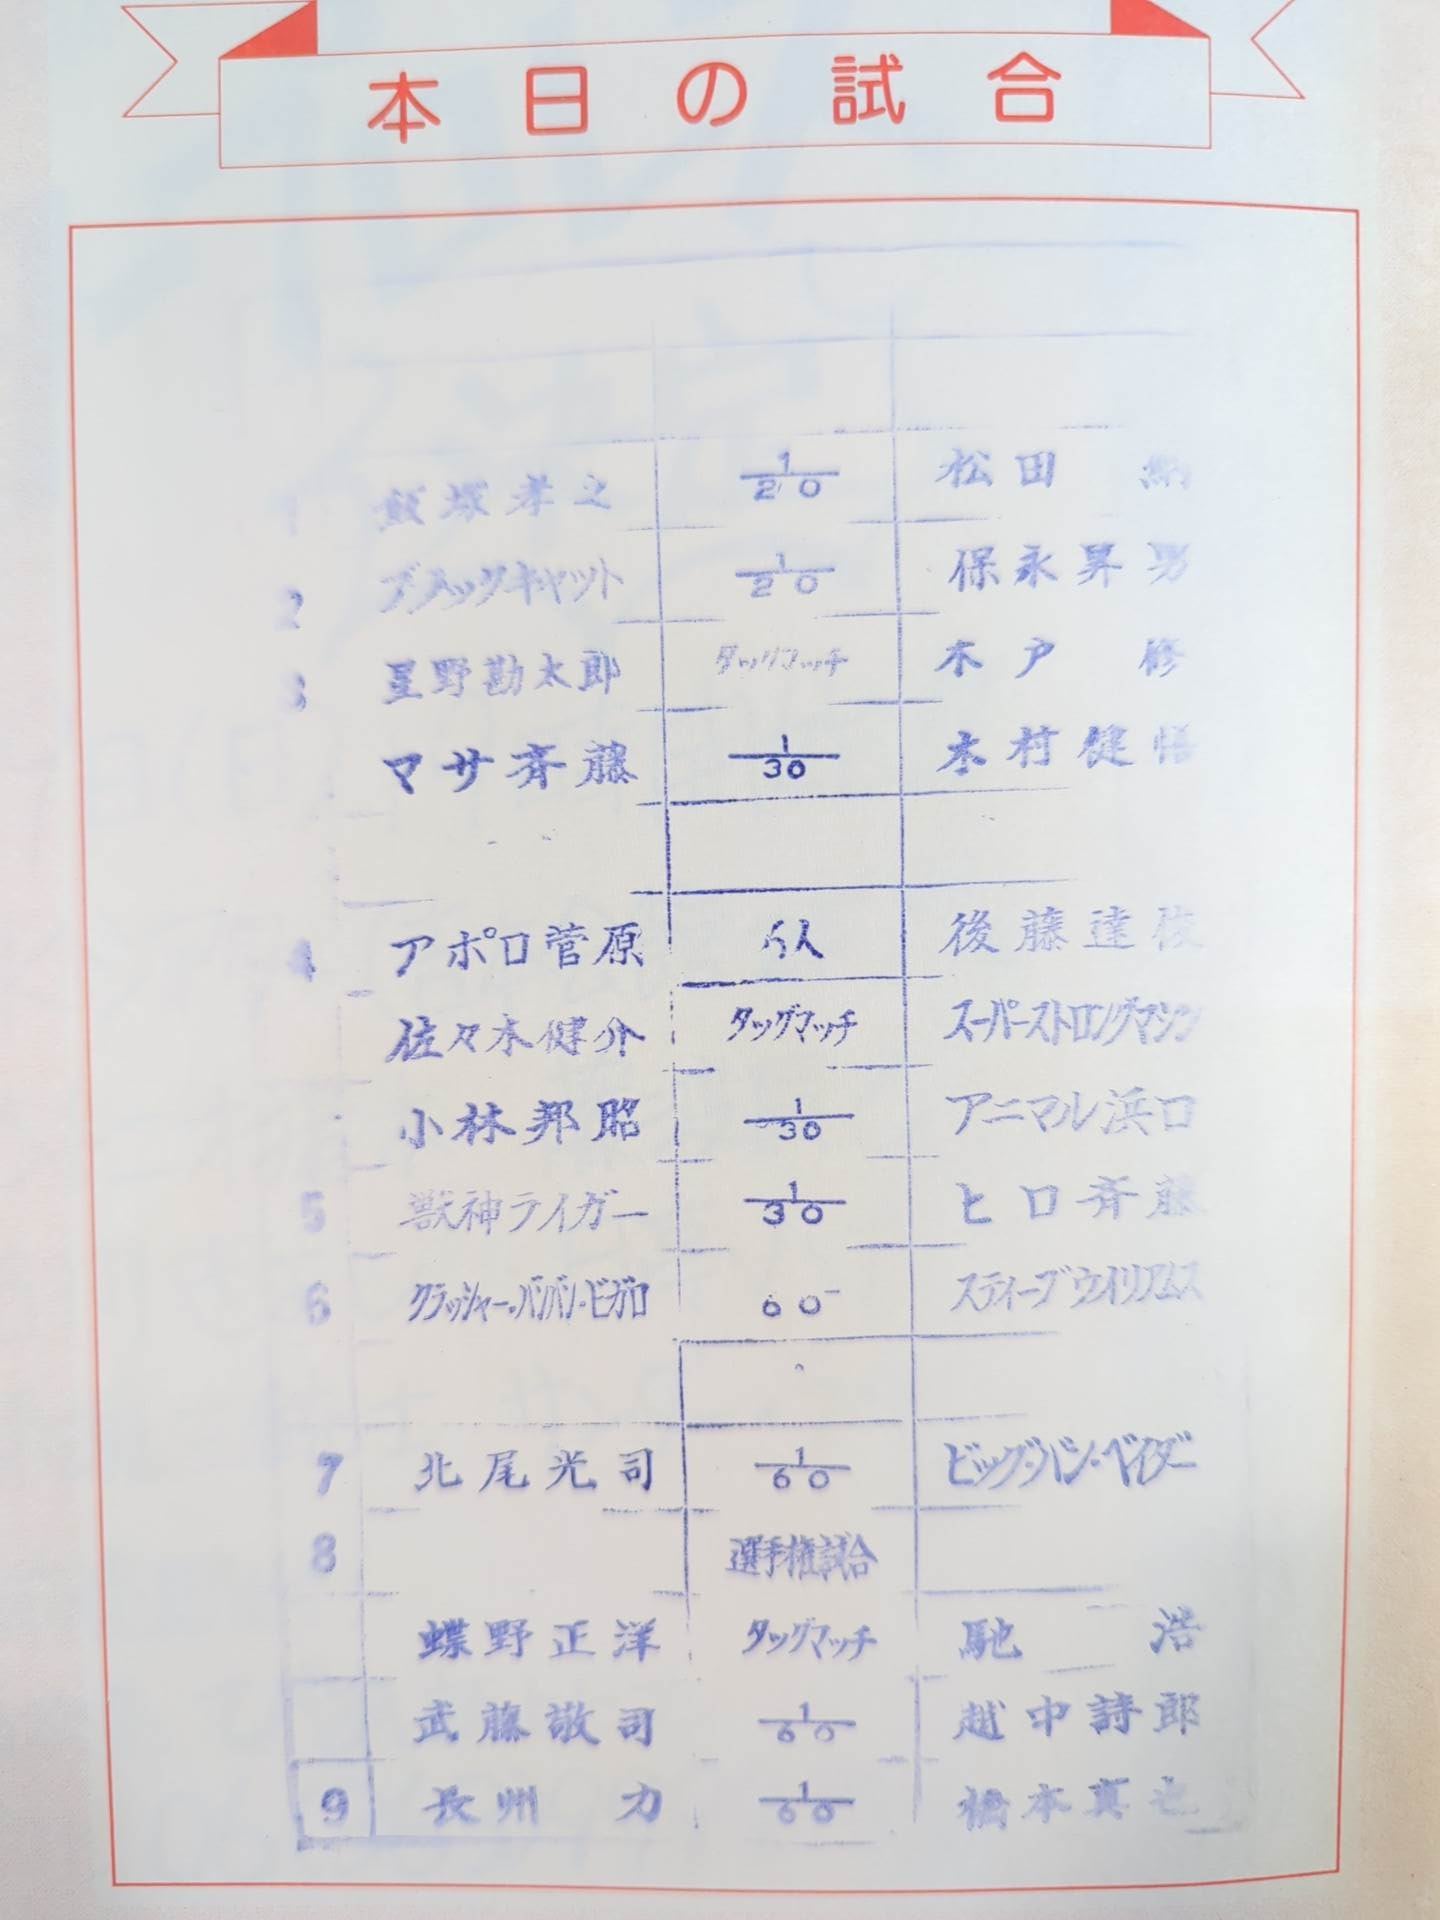 本日の試合
1 飯塚孝之 1/20 松田 納
2 ブラックキャット 1/20 保永昇男
3 星野勘太郎 タッグマッチ 木戸 修
マサ斉藤 1/30 木村健悟
4 アポロ菅原 6人 後藤達俊
佐々木健介 タッグマッチ スーパーストロングマシン
小林邦昭 1/30 アニマル浜口
5 獣神ライガー 1/30 ヒロ斉藤
6 クラッシャー・バンバン・ビガロ 60 スティーブウイリアムス
7 北尾光司 1/60 ビッグ・バン・ベイダー
8 選手権試合
蝶野正洋 タッグマッチ 馳 浩
武藤敬司 1/60 越中詩郎
9 長州 力 1/60 橋本真也